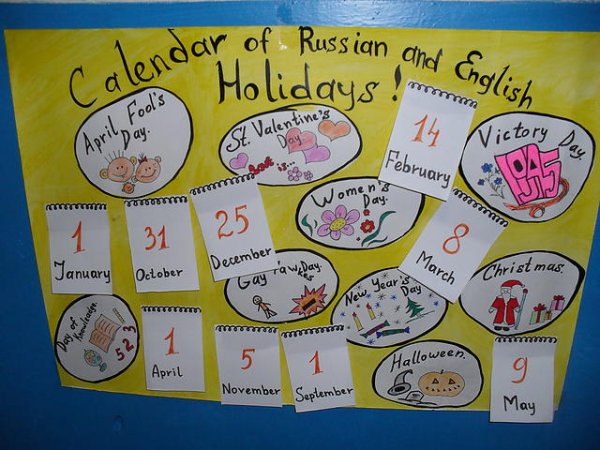 Calendar of Russian and English
Holidays!
April Fool's
Day.
St. Valentine's
Day
Love is...
14
February
Victory Day.
1945
Women's
Day.
1
January
31
October
25
December
8
March
Gay
Day.
New Year's
Day
Christmas.
Day of
Knowledge.
5 2 3
1
April
5
November
1
September
Halloween.
9
May